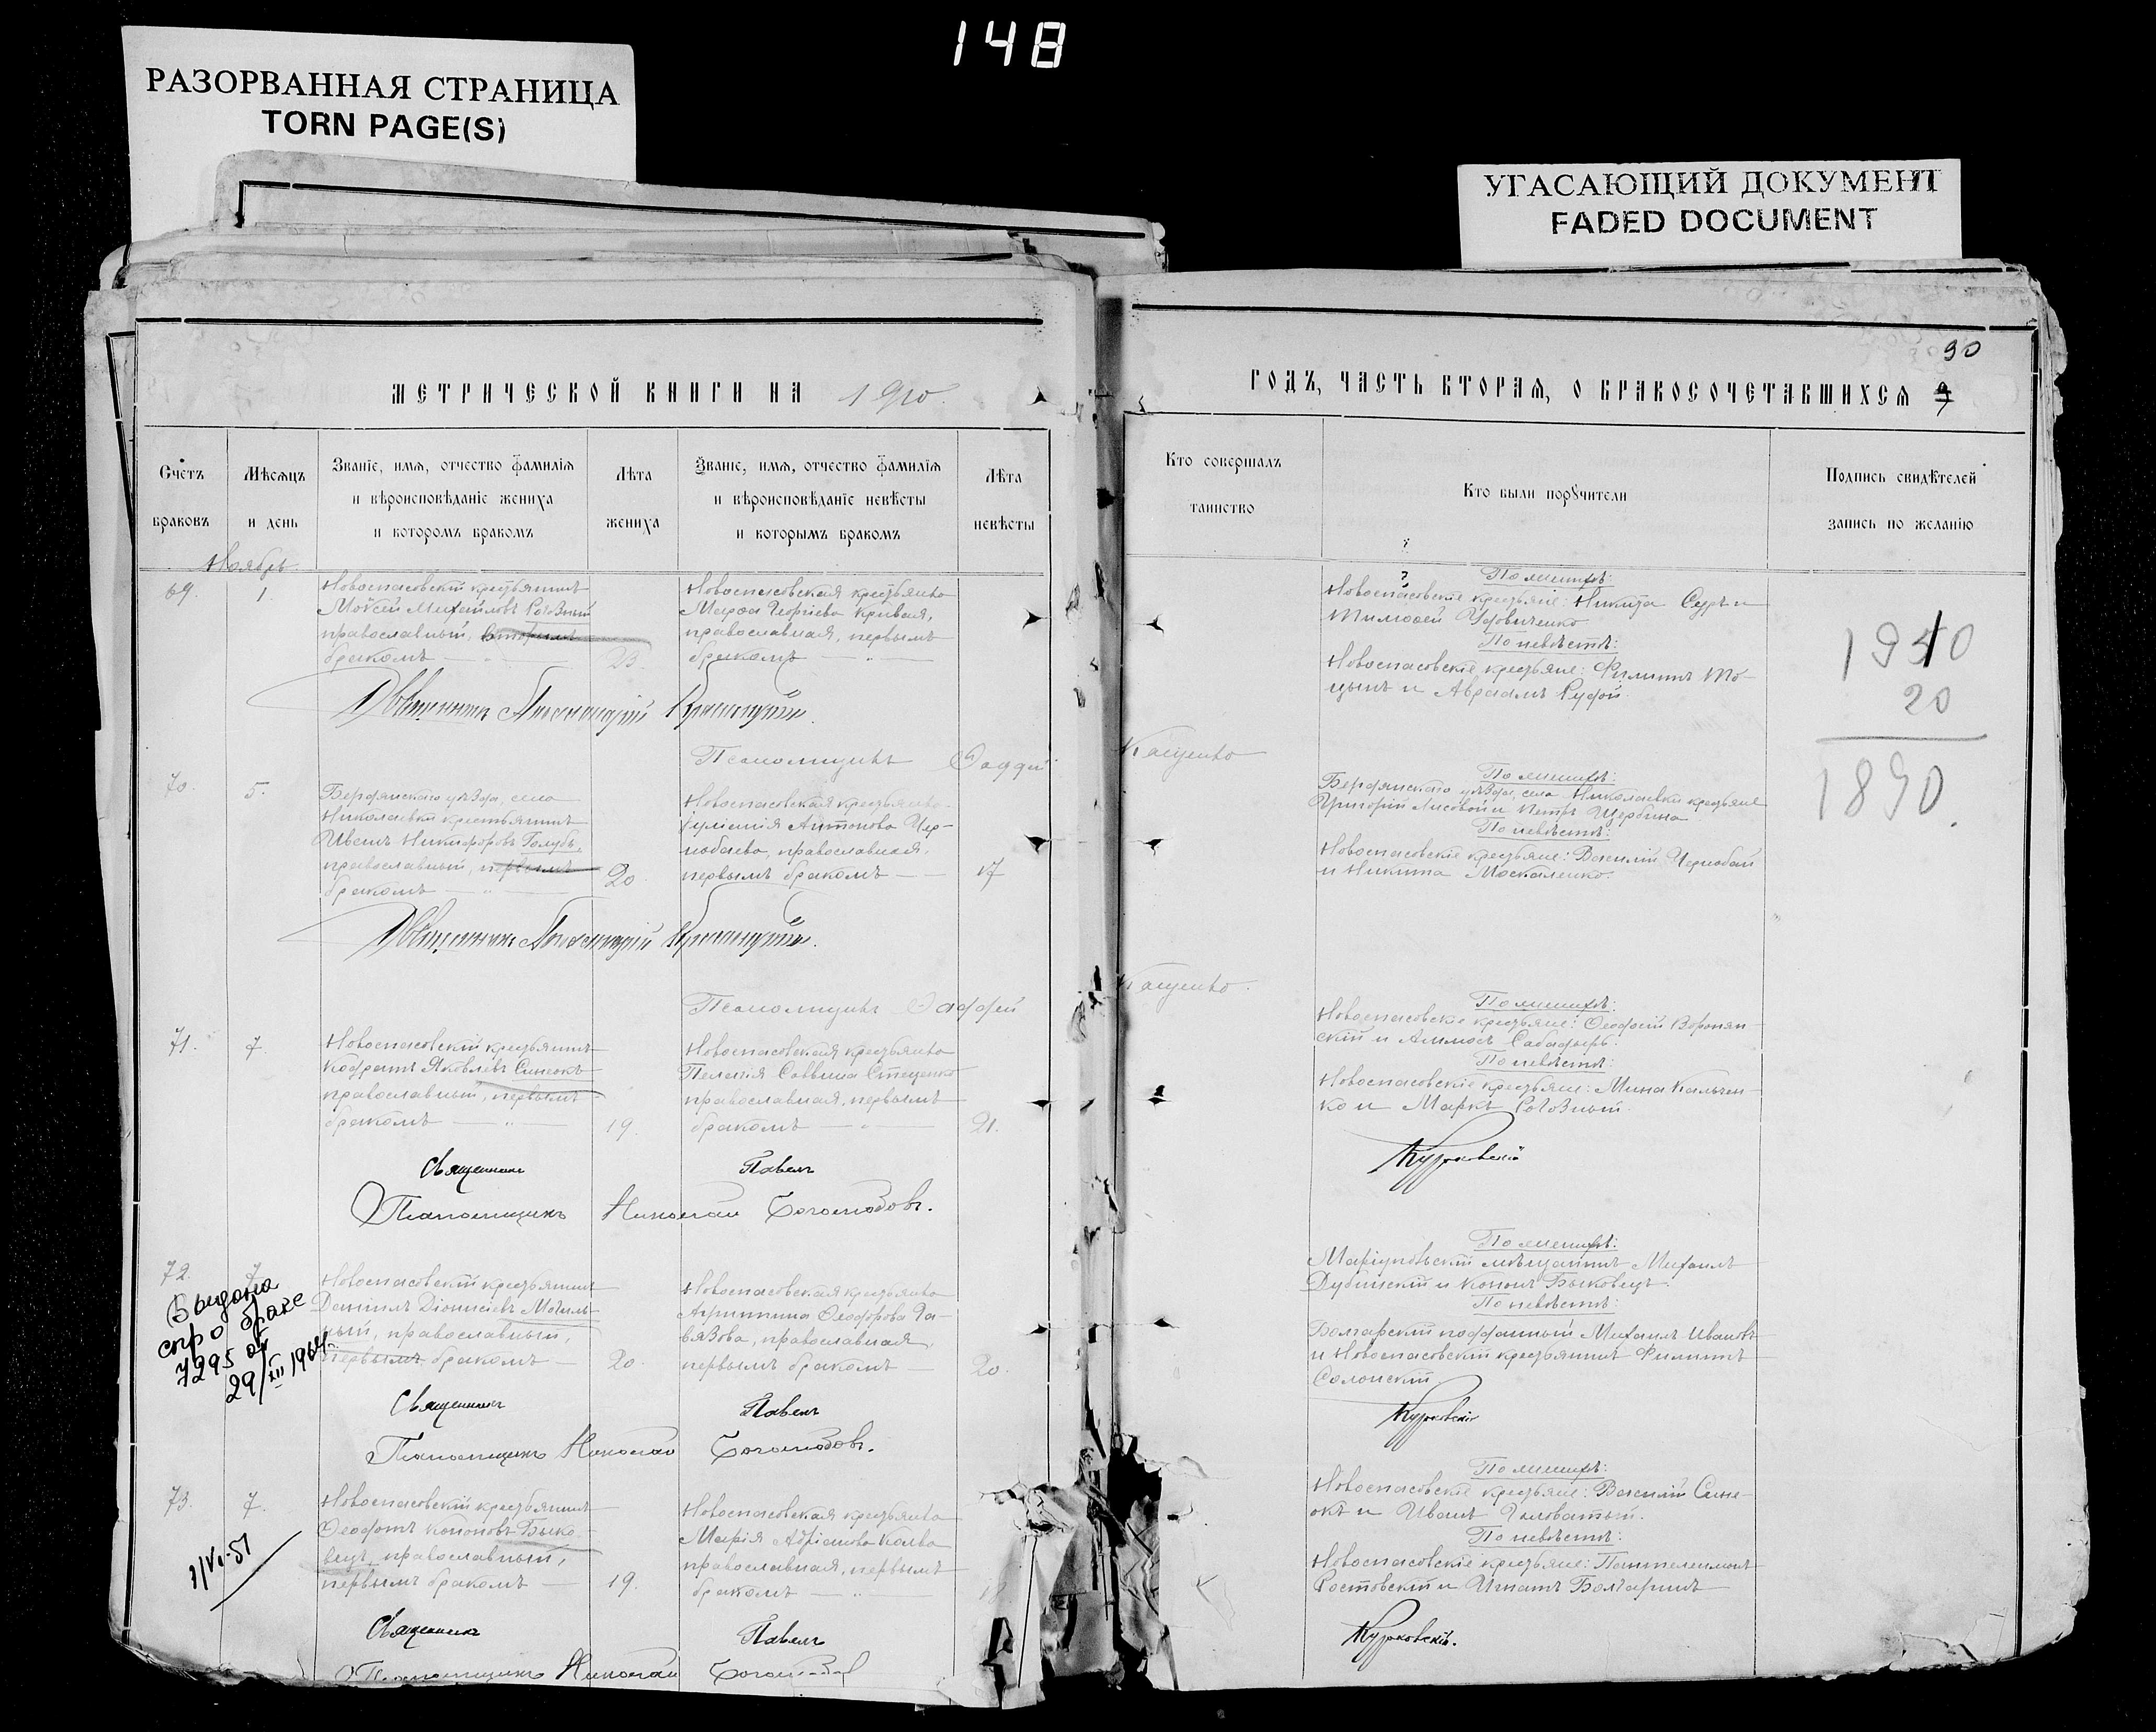 148
РАЗОРВАННАЯ СТРАНИЦА
TORN PAGE(S)
УГАСАЮЩИЙ ДОКУМЕНТ
FADED DOCUMENT
МЕТРИЧЕСКОЙ КНИГИ НА 1910
Счетъ браковъ
Мѣсяцъ и день
Званіе, имя, отчество фамилія
и вѣроисповѣданіе жениха
и которомъ бракомъ
Лѣта жениха
Званіе, имя, отчество фамилія
и вѣроисповѣданіе невѣсты
и которымъ бракомъ
Лѣта невѣсты
Ноябрь
69.
1.
Новоспасовскій крестьянинъ
Моѵсей Михайловъ Роговный
православный, вторымъ
бракомъ
23.
Новоспасовская крестьянка
Марѳа Георгіева Кривая,
православная, первымъ
бракомъ
Священникъ
Псаломщикъ Фаддей
70.
5.
Бердянскаго уѣзда, села
Николаевки крестьянинъ
Иванъ Никифоровъ Голубь,
православный, первымъ
бракомъ
20.
Новоспасовская крестьянка
Іуліанія Антонова Чер-
нобаева, православная,
первымъ бракомъ
17
Священникъ
Псаломщикъ Фаддей
71.
7
Новоспасовскій крестьянинъ
Кодратъ Яковлевъ Синеокъ
православный, первымъ
бракомъ
19.
Новоспасовская крестьянка
Пелагія Саввина Стеценко
православная, первымъ
бракомъ
21.
Священникъ Павелъ
Псаломщикъ Николай Боголюбовъ.
72.
7
Новоспасовскій крестьянинъ
Даніилъ Діонисіевъ Могиль-
ный, православный,
первымъ бракомъ
20.
Новоспасовская крестьянка
Агриппина Ѳеодорова Га-
вязова, православная,
первымъ бракомъ
20.
Выдана
спр о браке
7295 от
29/XII 1964г.
Священникъ Павелъ
Псаломщикъ Николай Боголюбовъ.
73.
7.
Новоспасовскій крестьянинъ
Ѳеодотъ Кононовъ Быко-
вецъ, православный,
первымъ бракомъ
19.
Новоспасовская крестьянка
Марія Адріанова Колва
православная, первымъ
бракомъ
Священникъ Павелъ
Псаломщикъ Николай
90
ГОДЪ, ЧАСТЬ ВТОРАЯ, О БРАКОСОЧЕТАВШИХСЯ
Кто совершалъ
таинство
Кто были поручители
Подпись свидѣтелей
запись по желанію
По женихѣ:
Новоспасовскіе крестьяне: Никита Суръ и
Тимоѳей Удовиченко
По невѣстѣ:
Новоспасовскіе крестьяне: Филиппъ То-
цынъ и Авраамъ Рудой.
1910
20
1890.
Кащенко
По женихѣ:
Бердянскаго уѣзда, села Николаевки крестьяне
Григорій Лисовой и Петръ Щербина
По невѣстѣ:
Новоспасовскіе крестьяне: Василій Чернобай
и Никита Москаленко.
Кащенко.
По женихѣ:
Новоспасовскіе крестьяне: Ѳеодосій Воронян-
скій и Аммосъ Сабадырь.
По невѣстѣ:
Новоспасовскіе крестьяне: Мина Кальчен-
ко и Маркъ Роговный.
Курковскій
По женихѣ:
Маріупольскій мѣщанинъ Михаилъ
Дубинскій и Кононъ Быковецъ.
По невѣстѣ:
Болгарскій подданный Михаилъ Ивановъ
и Новоспасовскій крестьянинъ Филиппъ
Солонскій
Курковскій
По женихѣ:
Новоспасовскіе крестьяне: Василій Сине-
окъ и Иванъ Чаловатый.
По невѣстѣ:
Новоспасовскіе крестьяне: Пантелеимонъ
Ростовскій и Игнатъ Болгаринъ
Курковскій.